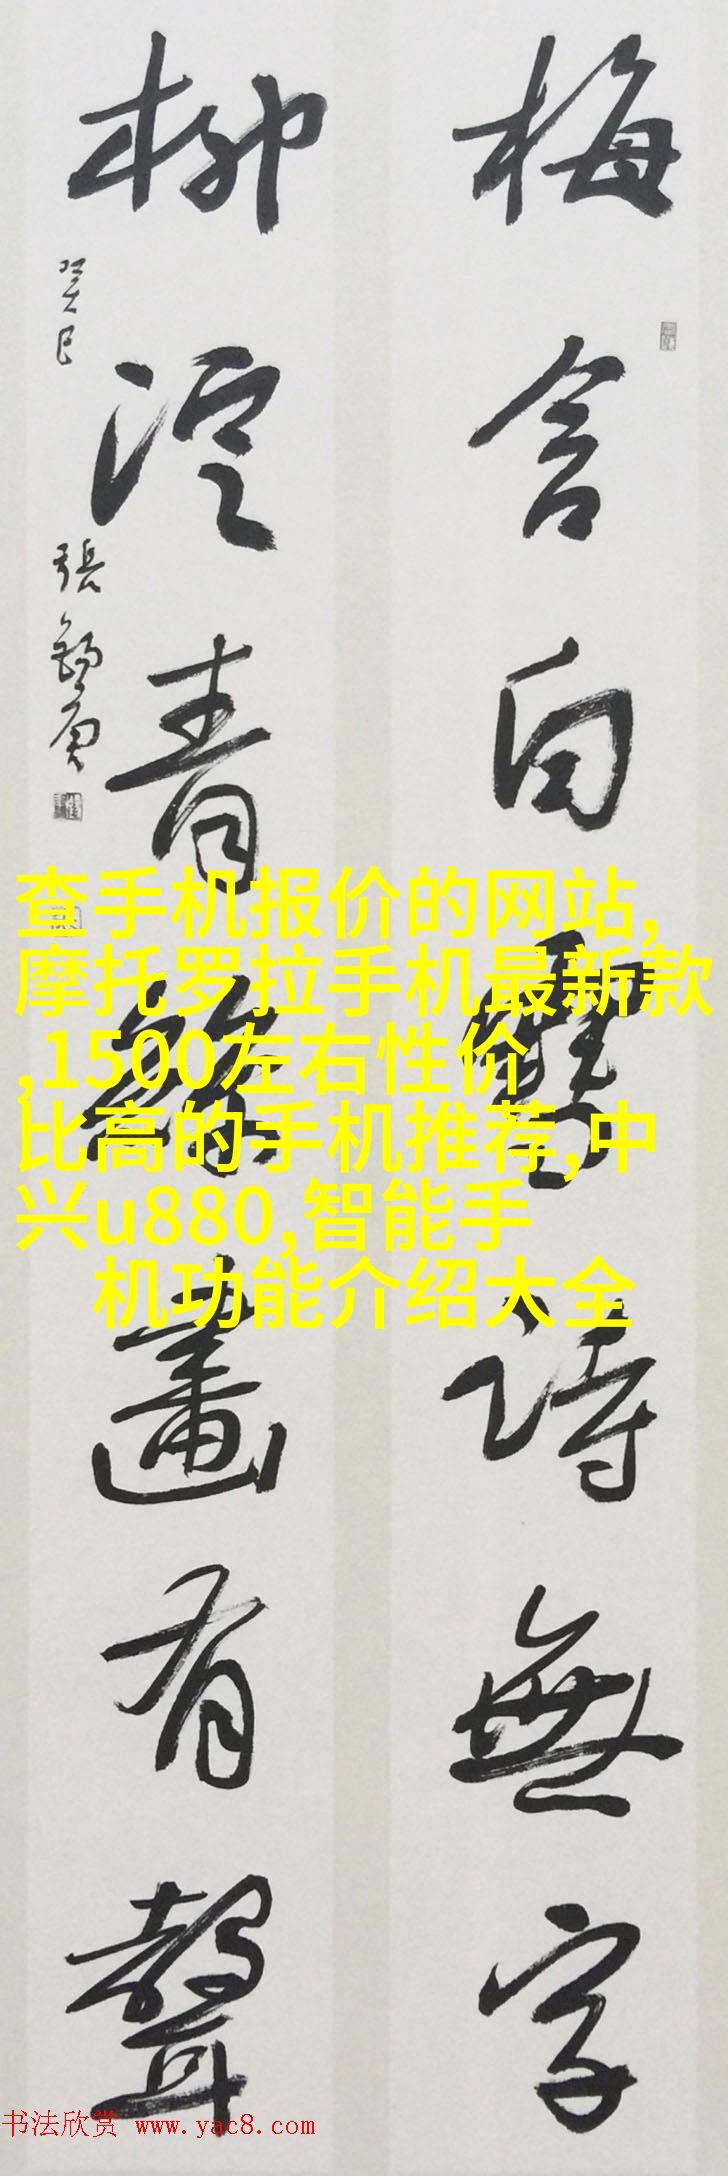 梅含白雪詩無字
柳浥青絲畫有聲
癸巳
張錫庚
查手机报价的网站,
摩托罗拉手机最新款
,1500左右性价
比高的手机推荐,中
兴u880,智能手
机功能介绍大全
书法欣赏 www.yac8.com